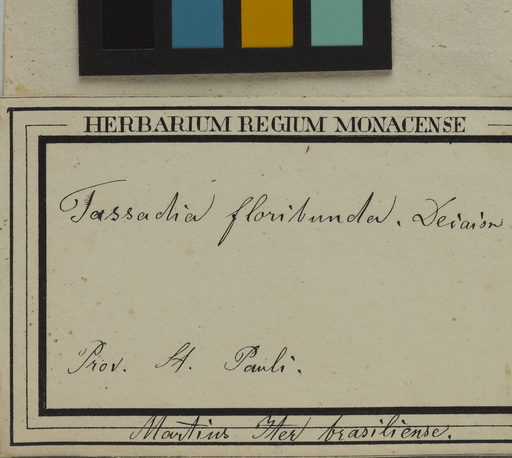 HERBARIUM REGIUM MONACENSE
Tassadia floribunda. Decaisn
Prov. St. Pauli.
Martius Iter brasiliense.